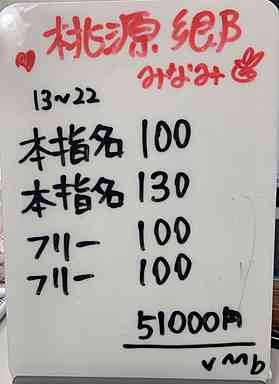 桃源郷
みなみ
13~22
本指名 100
本指名 130
フリー 100
フリー 100
51000円